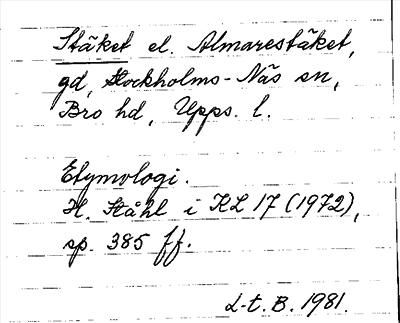 Stäket el. Almarestäket,
gd, Stockholms-Näs sn,
Bro hd, Upps. l.
Etymologi.
H. Ståhl i KL 17 (1972),
sp. 385 ff.
L-t. B. 1981.